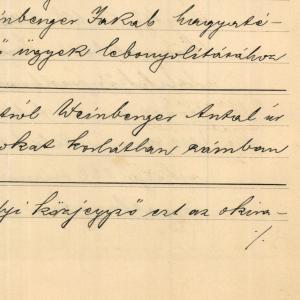 nberger Jakab hagyaté-
ő ügyek lebonyolításához
tról Weinberger Antal úr
okat korlátlan számban
lyi közjegyző ezt az okira-
./.